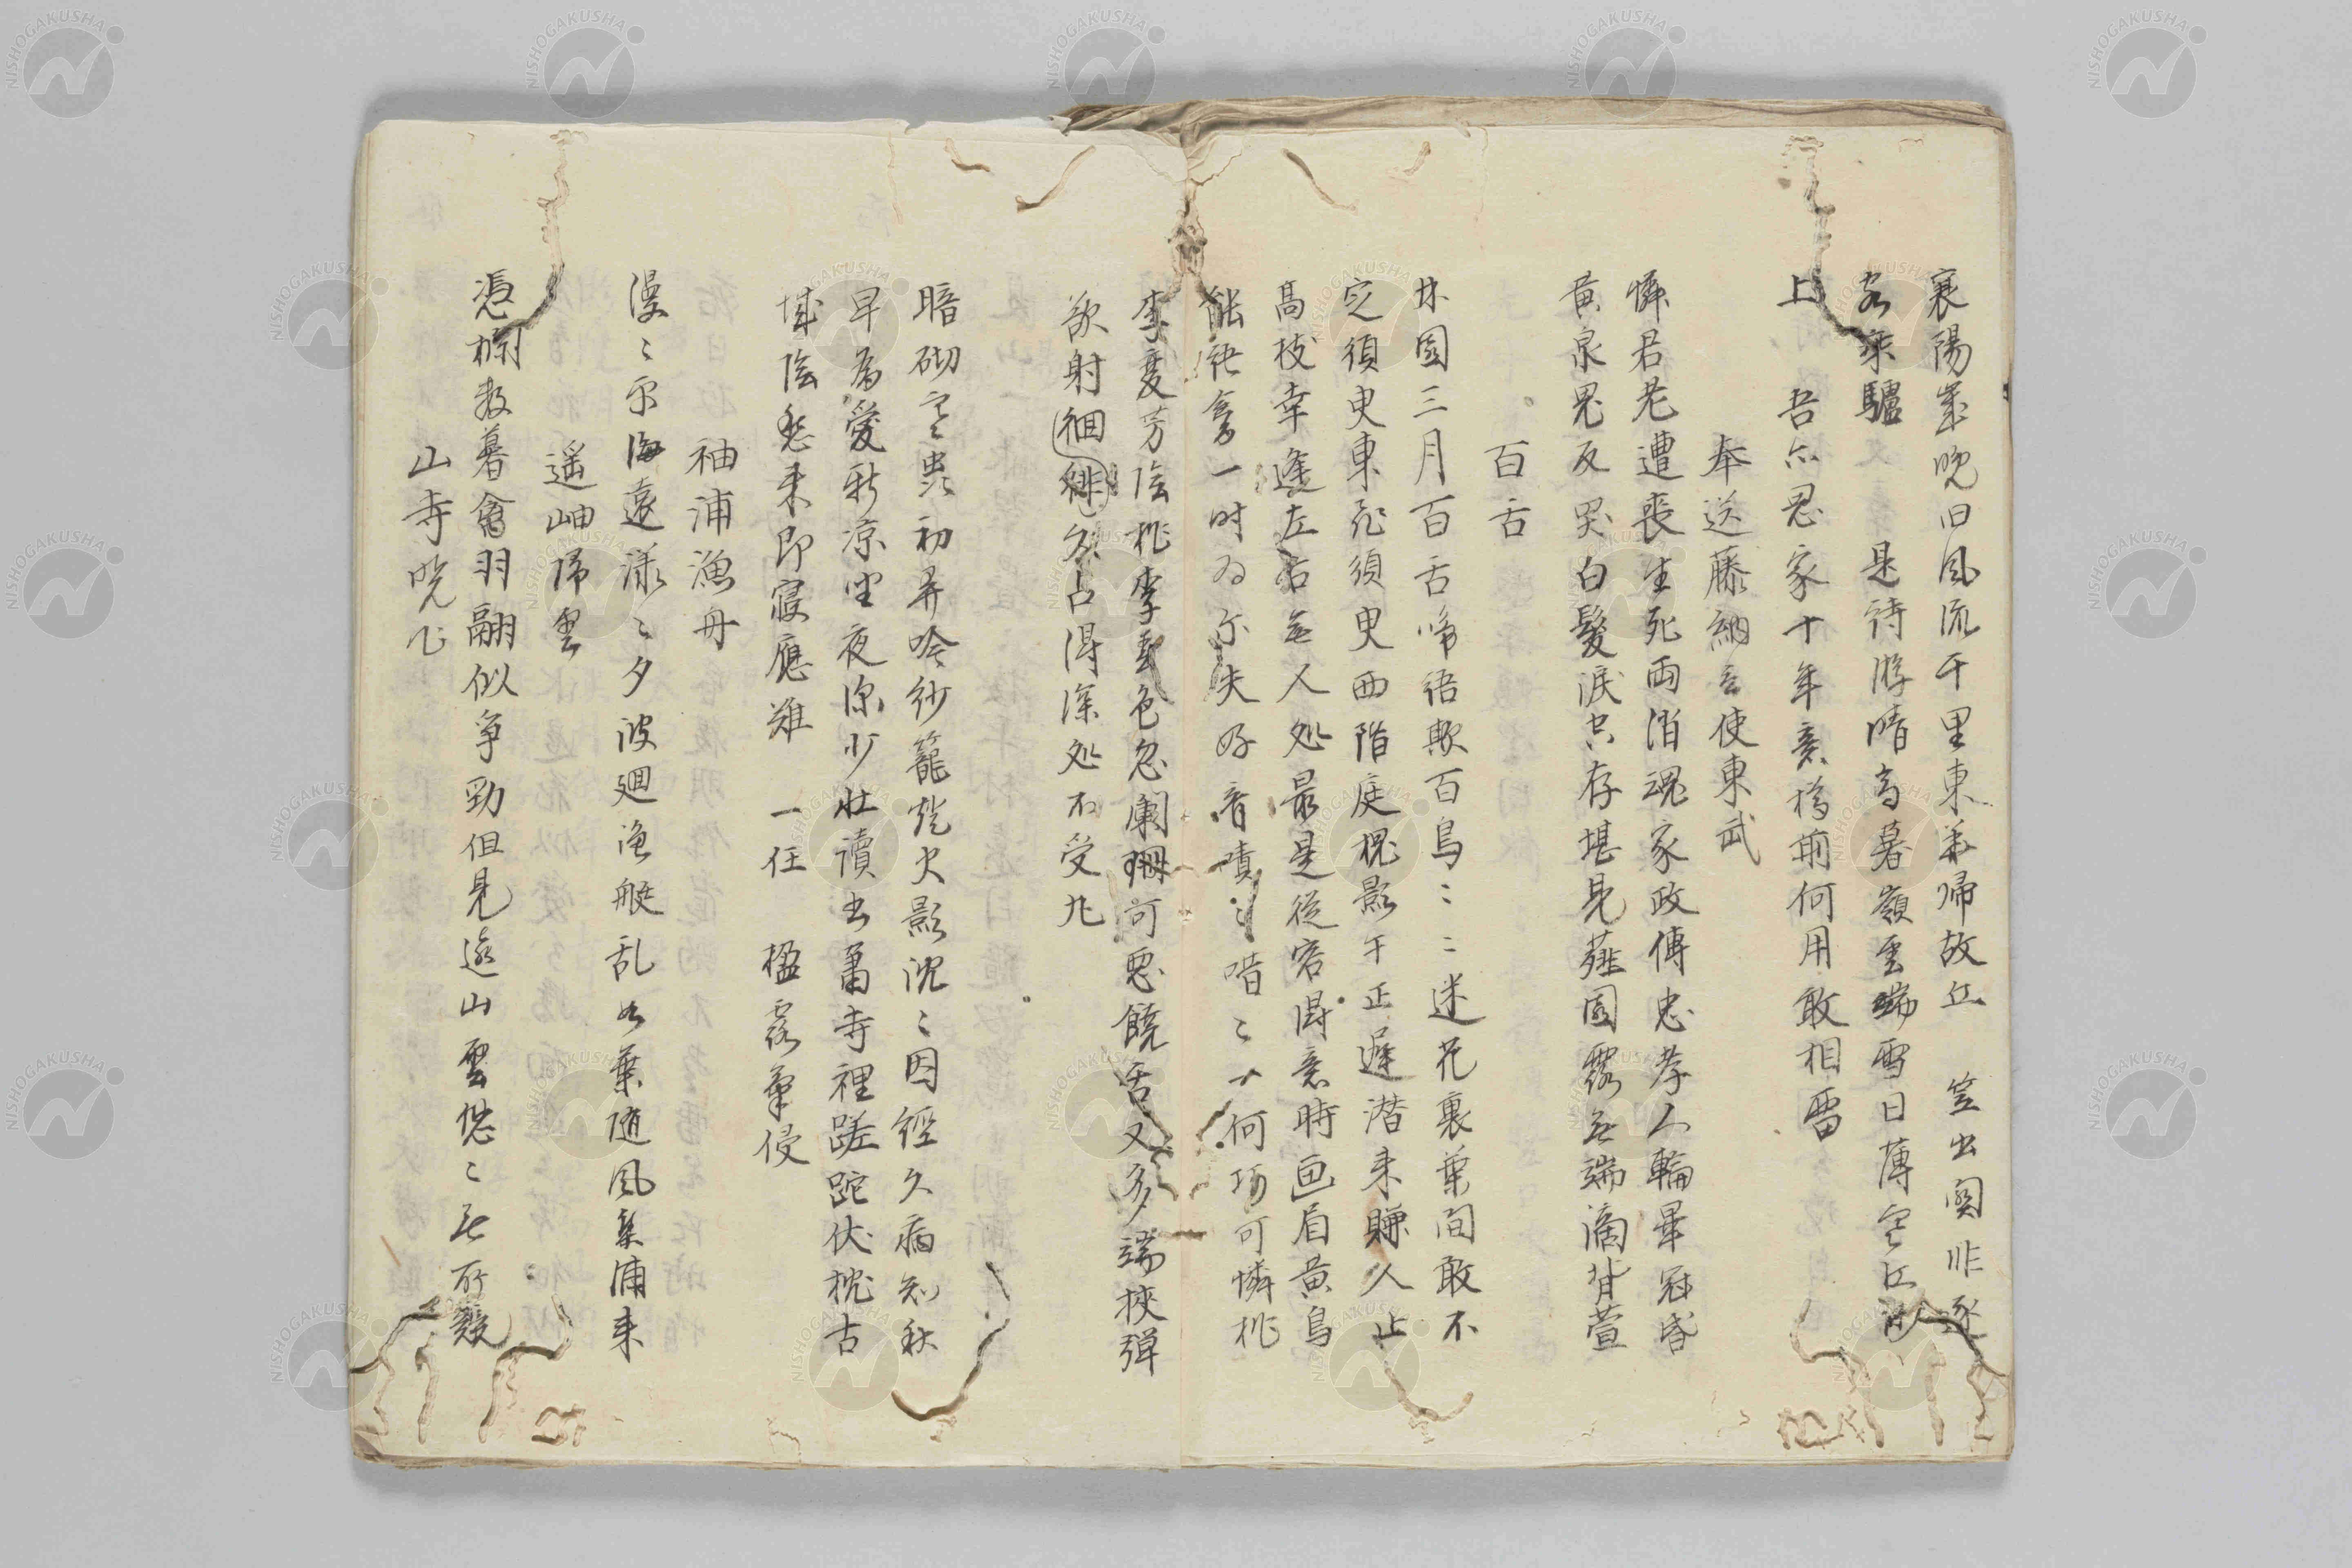 襄陽業晩旧風流千里東来帰故丘 豈出奥非逐
客乗驢 是待游晴高暮嶺雲端雪日薄空江
上 吾亦思家十年意橋前何用敢相留
奉送藤納言使東武
憐君老遭喪生死両消魂家政傳忠孝人輪畢冠昏
黄泉思反哭白髮涙空存堪見薤園露無端滴背萱
百舌
林園三月百舌啼語欺百鳥〻〻迷花裏葉間敢不
定須臾東飛須臾西階庭槐影午正遅潜来賺人止
高枝幸逢左右無人処最是從容得意時画眉黄鳥
能舵倉一時為尓失好音嘖〻喈〻一何巧可憐桃
李変芳陰桃李春色忽闌珊可悪饒舌又多端挾弾
欲射徊徘久占得深処不受丸
暗砌寒蟲初弄吟紗籠燈火影沈〻因經久病知秋
早為愛新凉坐夜深少壮讀出蕭寺裡蹉跎伏枕古
城陰愁来即寝應難 一任 楹露氣侵
袖浦漁舟
漫〻尓海遠漾〻夕波廻漁艇乱如葉随風集浦来
遥岫帰雲
憑欄数暮禽羽翮似争勁但見遠山雲悠〻無所競
山寺晩